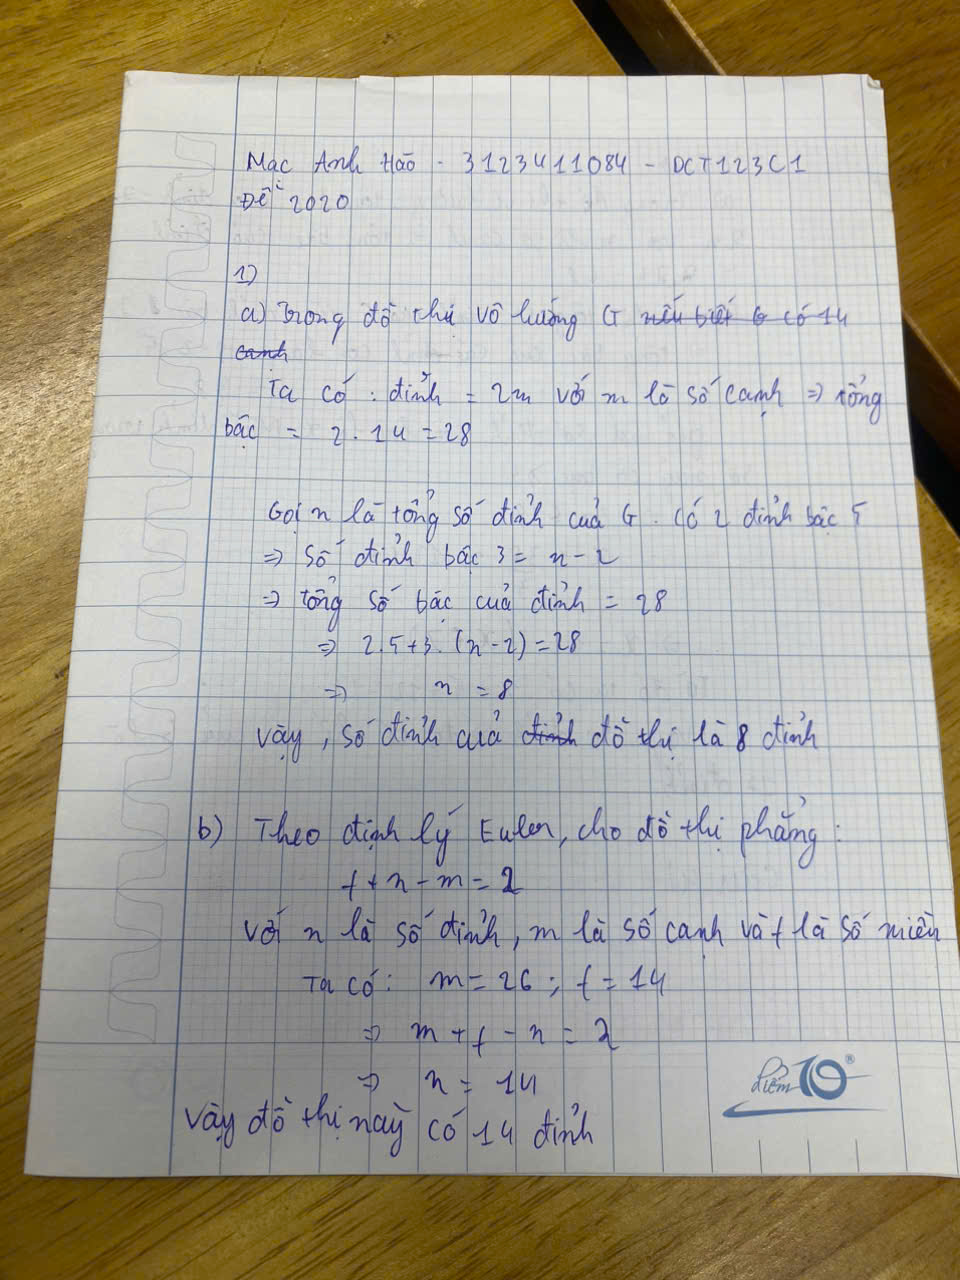 Mạc Anh Hào - 3123411084 - DCT123C1
Đề 2020
1)
a) Trong đồ thị vô hướng G nếu biết G có 14
cạnh
Ta có : đỉnh = 2m với m là số cạnh => tổng
bậc = 2.14 = 28
Gọi n là tổng số đỉnh của G. Có 2 đỉnh bậc 5
=> số đỉnh bậc 3 = n - 2
=> tổng số bậc của đỉnh = 28
=> 2.5+3.(n-2) = 28
=> n = 8
Vậy, số đỉnh của đỉnh đồ thị là 8 đỉnh
b) Theo định lý Euler, cho đồ thị phẳng:
f + n - m = 2
Với n là số đỉnh, m là số cạnh và f là số miền
Ta có: m = 26 ; f = 14
=> m + f - n = 2
=> n = 14
Vậy đồ thị này có 14 đỉnh
điểm 10®